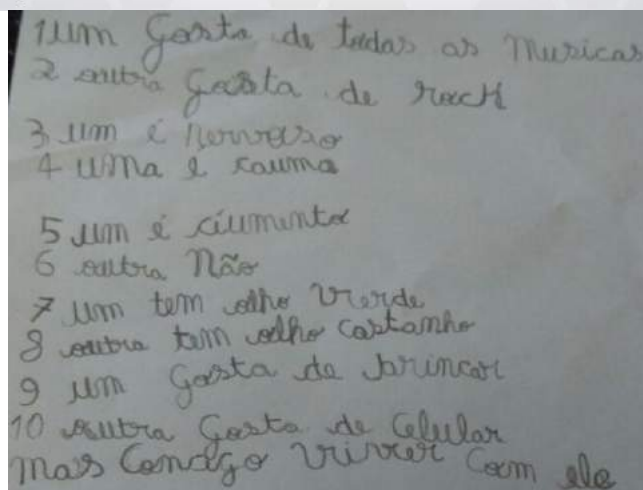 1 um gosta de todas as musicas
2 outra gosta de rock
3 um é nervoso
4 uma e cauma
5 um é ciumento
6 outra não
7 um tem olho verde
8 outra tem olho castanho
9 um gosta de brincar
10 outra gosta de celular
mas consigo viver com ele